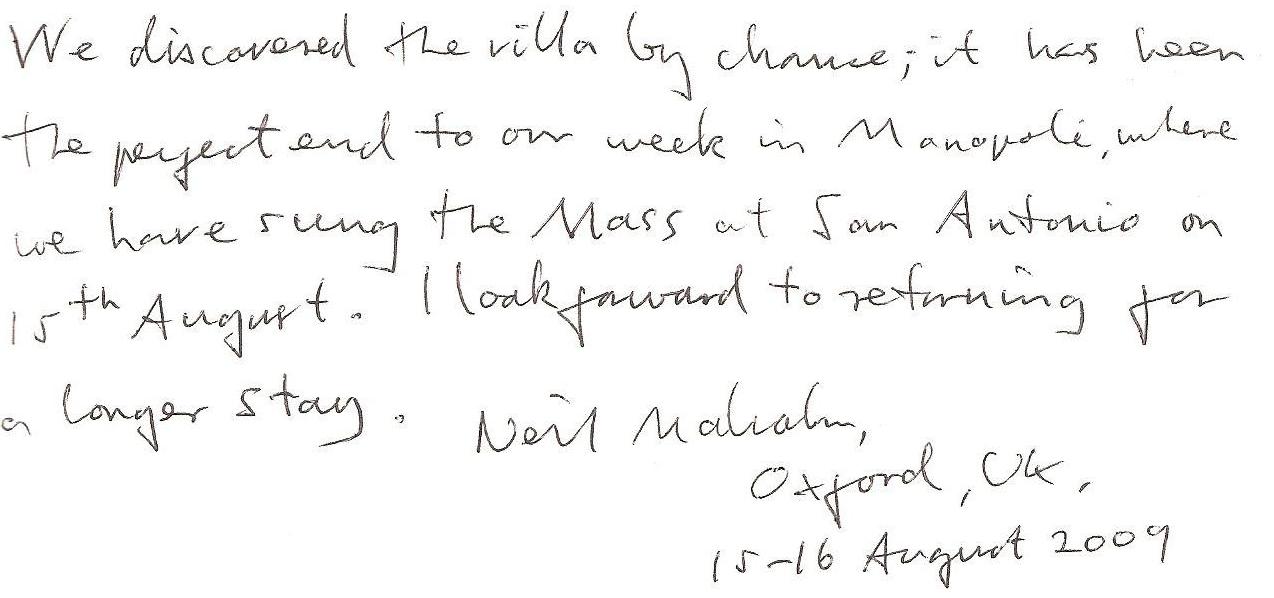 We discovered the villa by chance; it has been
the perfect end to our week in Manopoli, where
we have sung the Mass at San Antonio on
15th August. I look forward to returning for
a longer stay. Neil Malcolm,
Oxford, UK,
15-16 August 2009